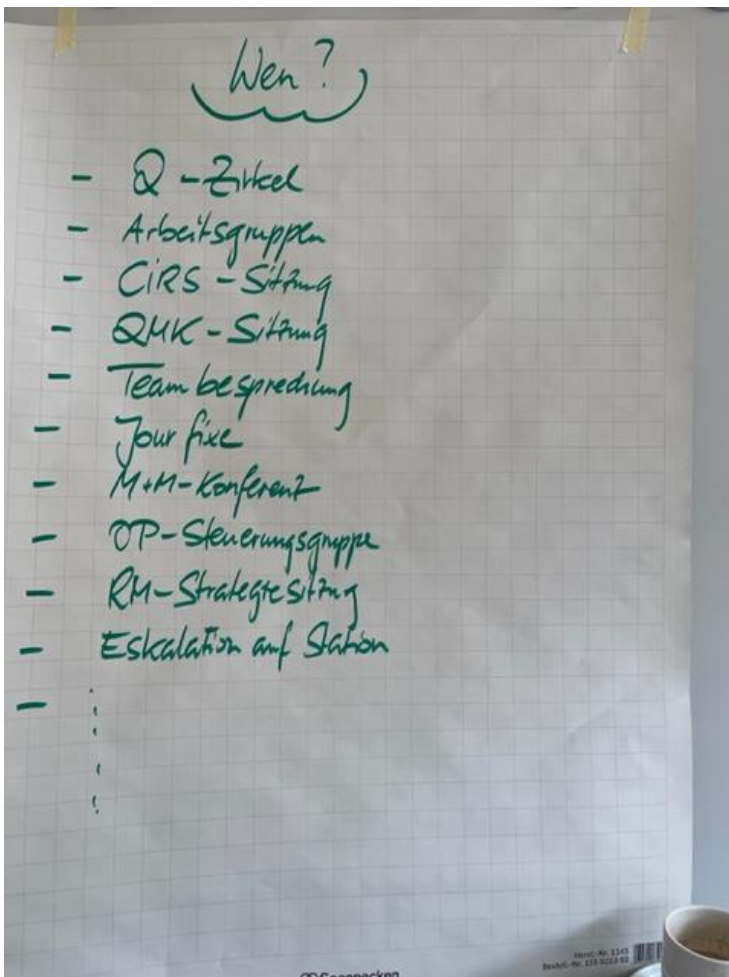 Wen?
- Q-Zirkel
- Arbeitsgruppen
- CiRS-Sitzung
- QMK-Sitzung
- Teambesprechung
- Jour fixe
- M+M-Konferenz
- OP-Steuerungsgruppe
- RM-Strategiesitzung
- Eskalation auf Station
-